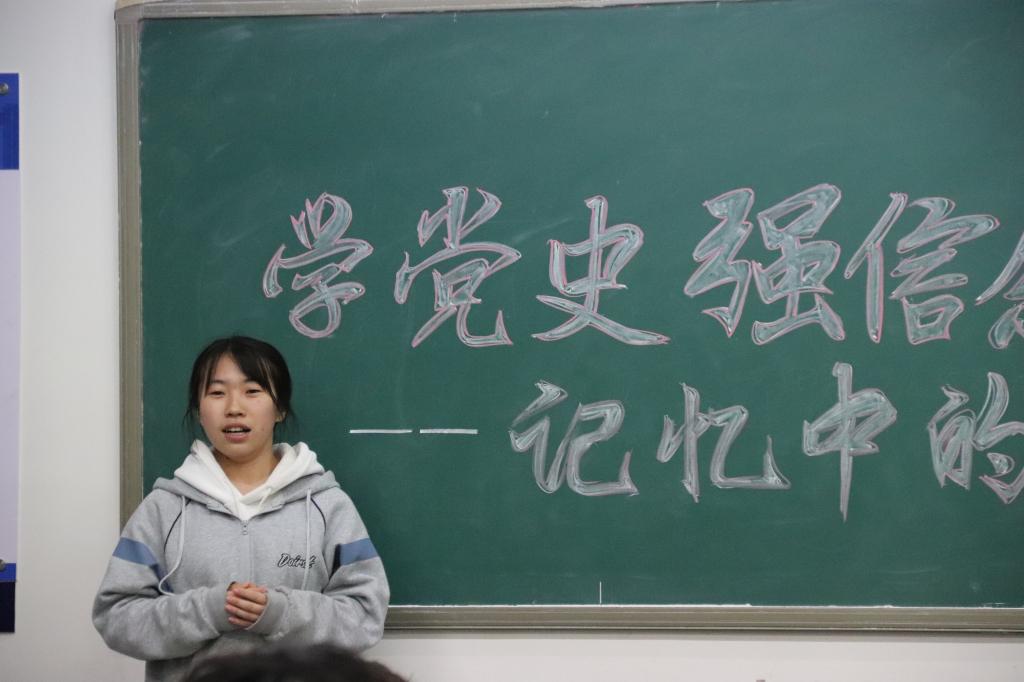 学党史 强信
——记忆中的